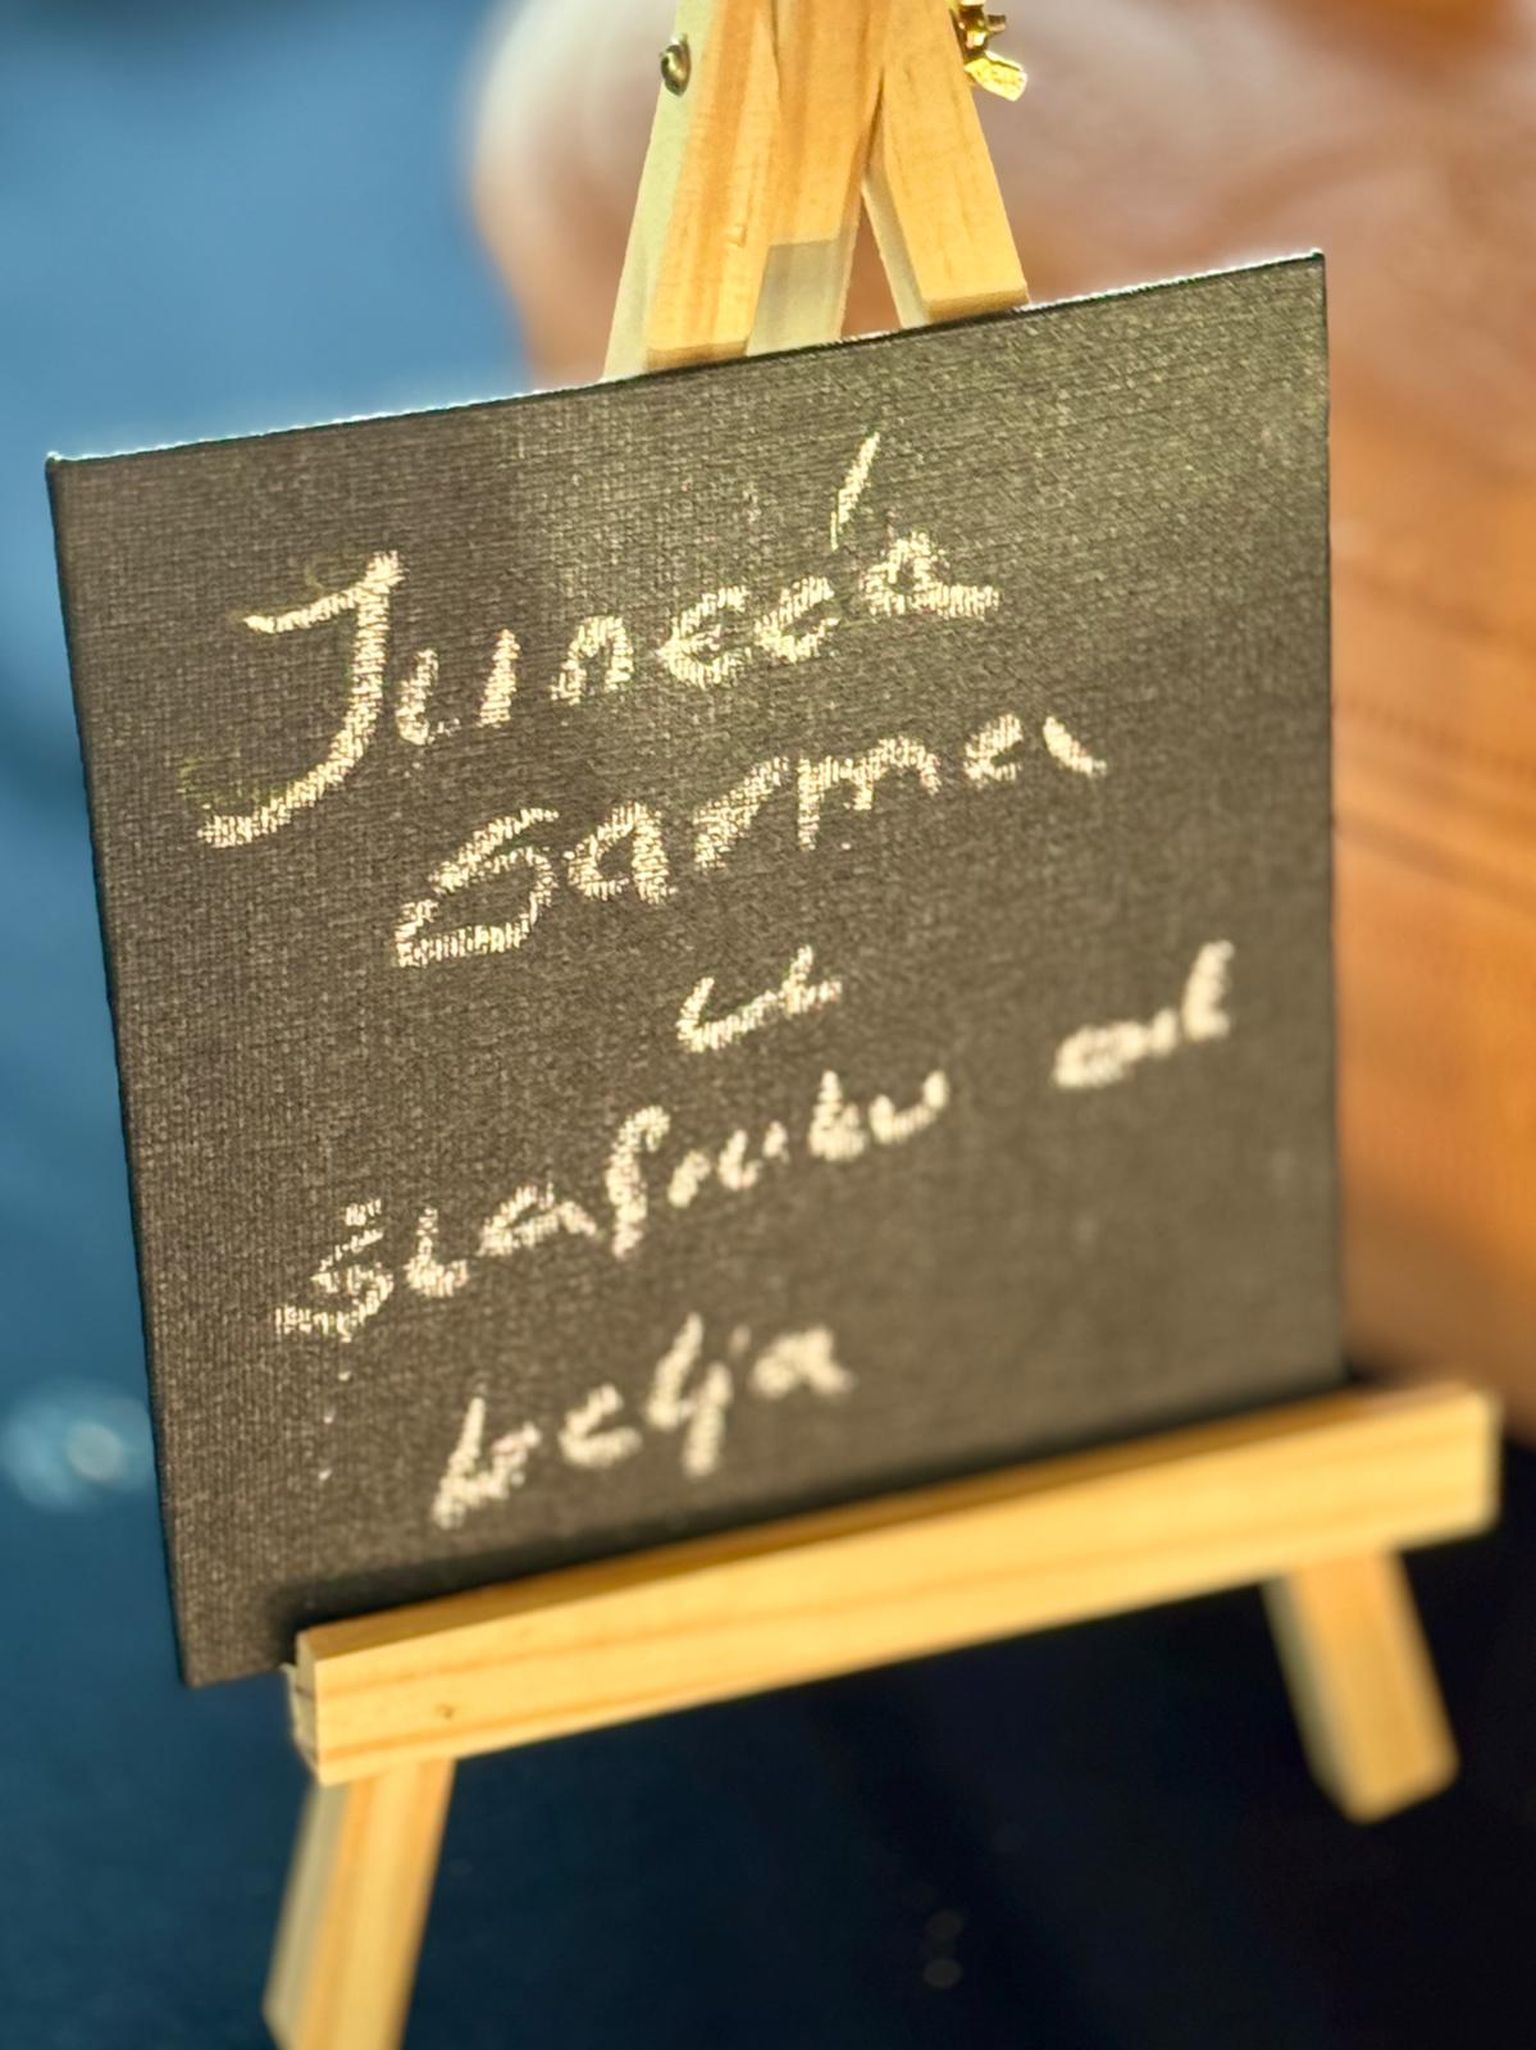 Juneća
Sarma
u
šlafruku od
kelja